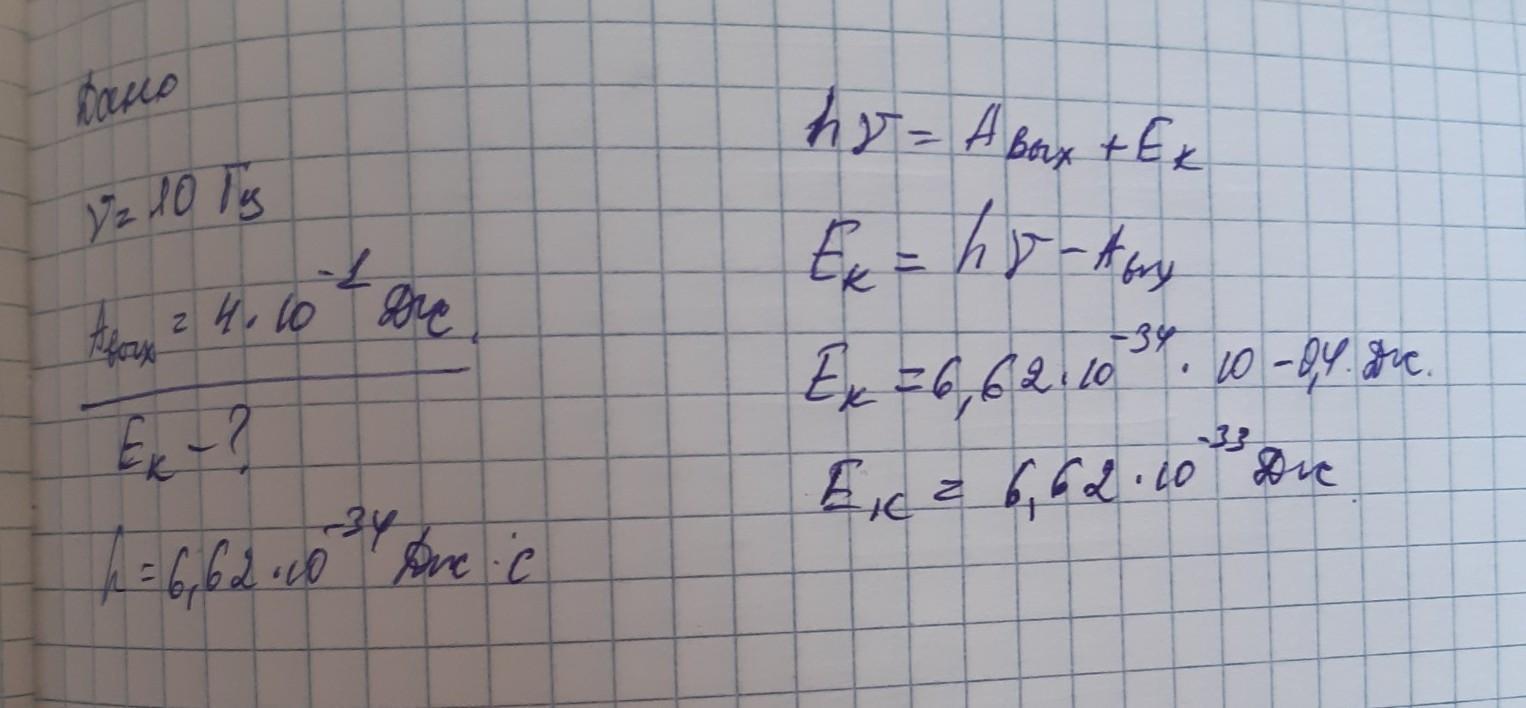 Дано
ν = 10 Гц
Aвых = 4 · 10⁻¹ Дж.
Eк - ?
h = 6,62 · 10⁻³⁴ Дж · с
hν = Aвых + Eк
Eк = hν - Aвых
Eк = 6,62 · 10⁻³⁴ · 10 - 0,4 · Дж.
Eк = 6,62 · 10⁻³³ Дж